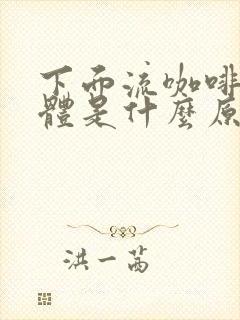 下面流咖啡
體是什麼原
洪一茜